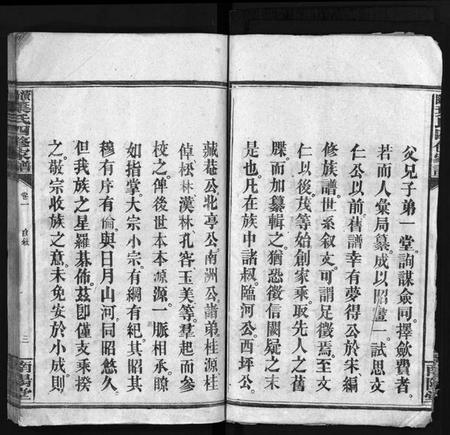 父兄子弟一堂詢謀僉同擇歛費者
若而人彙局纂成以昭畫一試思文
仁公以前舊譜幸有夢得公於宋編
修族譜世系叙文可謂足徵焉至文
仁以後茂等始創家乘取先人之舊
牒而加纂輯之猶恐徵信闕疑之未
是也凡在族中諸叔臨河公西坪公
藏菴公北亭公南洲公諸弟桂源桂
倬松林漢林孔容玉美等羣起而參
校之俾後世本本源源一脈相承瞭
如指掌大宗小宗有綱有紀其昭其
穆有序有倫與日月山河同昭悠久
但我族之星羅碁佈玆卽僅支乘揆
之敬宗收族之意未免安於小成則
葉氏四修家譜
卷一
三
南陽堂